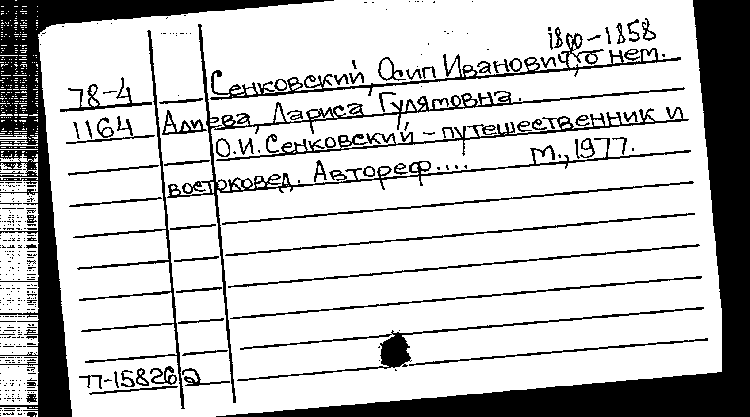 1800-1858
78-4 Сенковский, Осип Иванович, о нем.
1164 Алиева, Лариса Гулятовна.
О.И. Сенковский - путешественник и
востоковед. Автореф.... М., 1977.
77-15826